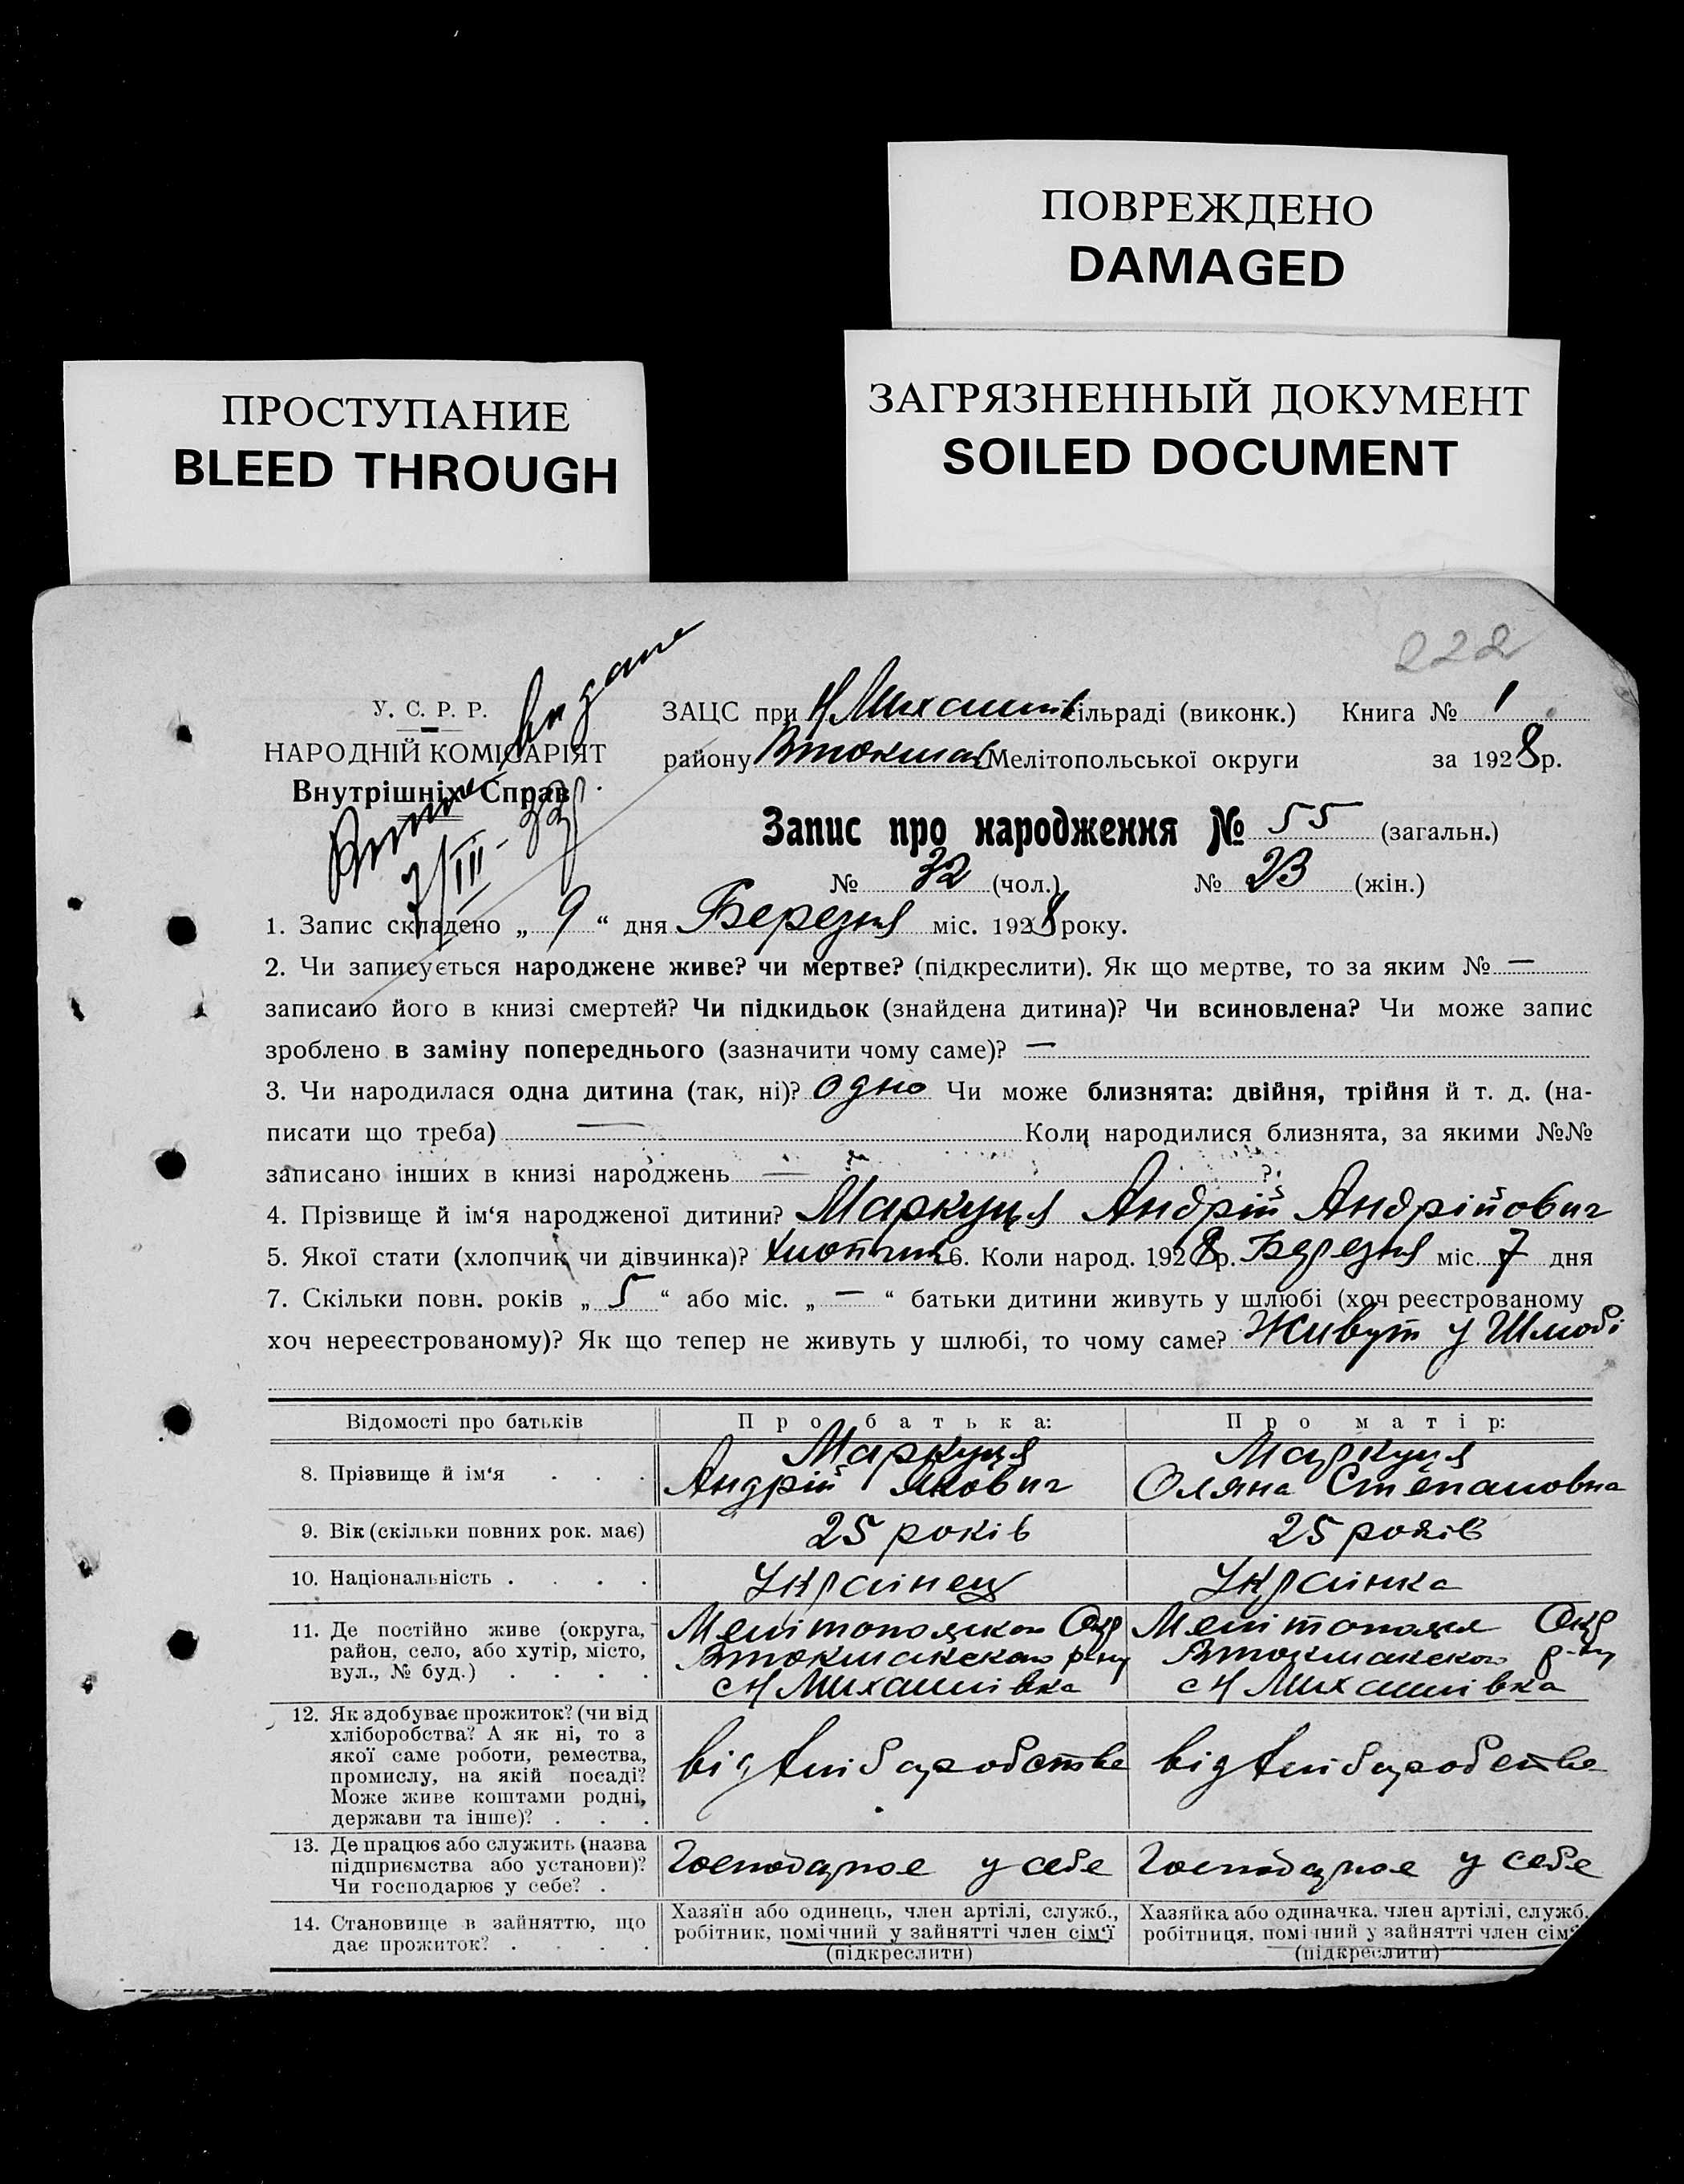 ПОВРЕЖДЕНО
DAMAGED
ПРОСТУПАНИЕ
BLEED THROUGH
ЗАГРЯЗНЕННЫЙ ДОКУМЕНТ
SOILED DOCUMENT
222
У. С. Р. Р.
НАРОДНІЙ КОМІСАРІЯТ
Внутрішніх Справ
7/III-33
ЗАЦС при Н Михайлів сільраді (виконк.) Книга № 1
району Втокмак Мелітопольської округи за 1928 р.
Запис про народження № 55 (загальн.)
№ 32 (чол.) № 23 (жін.)
1. Запис складено „ 9 “ дня Березня міс. 1928 року.
2. Чи записується народжене живе? чи мертве? (підкреслити). Як що мертве, то за яким № —
записано його в книзі смертей? Чи підкидьок (знайдена дитина)? Чи всиновлена? Чи може запис
зроблено в заміну попереднього (зазначити чому саме)? —
3. Чи народилася одна дитина (так, ні)? одно Чи може близнята: двійня, трійня й т. д. (на-
писати що треба) — Коли народилися близнята, за якими №№
записано інших в книзі народжень — ?
4. Прізвище й ім‘я народженої дитини? Маркуця Андрій Андрійович
5. Якої стати (хлопчик чи дівчинка)? Хлопчик 6. Коли народ. 1928 р. Березня міс. 7 дня
7. Скільки повн. років „ 5 “ або міс. „ — “ батьки дитини живуть у шлюбі (хоч реєстрованому
хоч нереєстрованому)? Як що тепер не живуть у шлюбі, то чому саме? Живут у Шлюбі
Відомості про батьків Про батька: Про матір:
8. Прізвище й ім‘я . . . Маркуця Маркуця
Андрій Якович Оляна Степановна
9. Вік (скільки повних рок. має) 25 років 25 років
10. Національність . . . . Українец Українка
11. Де постійно живе (округа, район, село, або хутір, місто, вул., № буд.) . . . .
Мелітопольскои Окр Втокмакскаго р-ну с Н Михайлівка
Окр Втокмакского р-ну с Н Михайлівка
12. Як здобуває прожиток? (чи від хліборобства? А як ні, то з якої саме роботи, ремества, промислу, на якій посаді? Може живе коштами родні, держави та інше)? . . .
від Хліборобства від Хліборобства
13. Де працює або служить (назва підприємства або установи)? Чи господарює у себе? .
Господарює у себе Господарює у себе
14. Становище в зайняттю, що дає прожиток? . . . .
Хазяїн або одинець, член артілі, служб., робітник, помічний у зайнятті член сім‘ї (підкреслити)
Хазяйка або одиначка, член артілі, служб. робітниця, помічний у зайнятті член сім‘ (підкреслити)